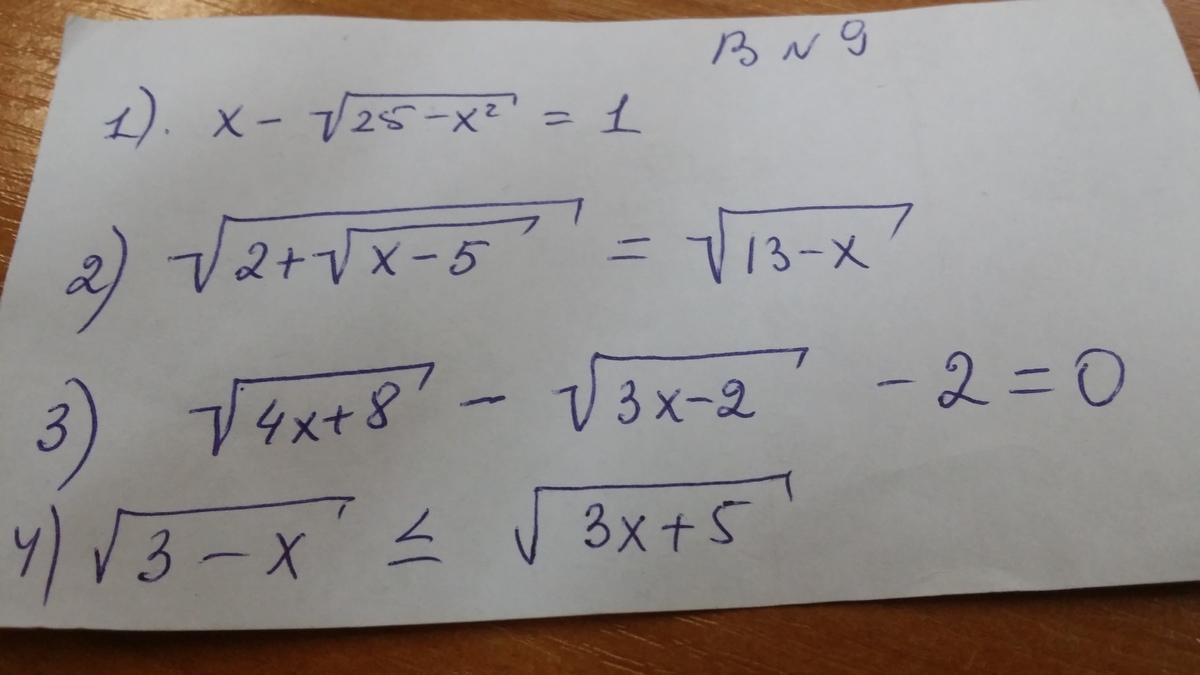 В № 9
1). x - √(25 - x²) = 1
2) √(2 + √(x - 5)) = √(13 - x)
3) √(4x + 8) - √(3x - 2) - 2 = 0
4) √(3 - x) ≤ √(3x + 5)